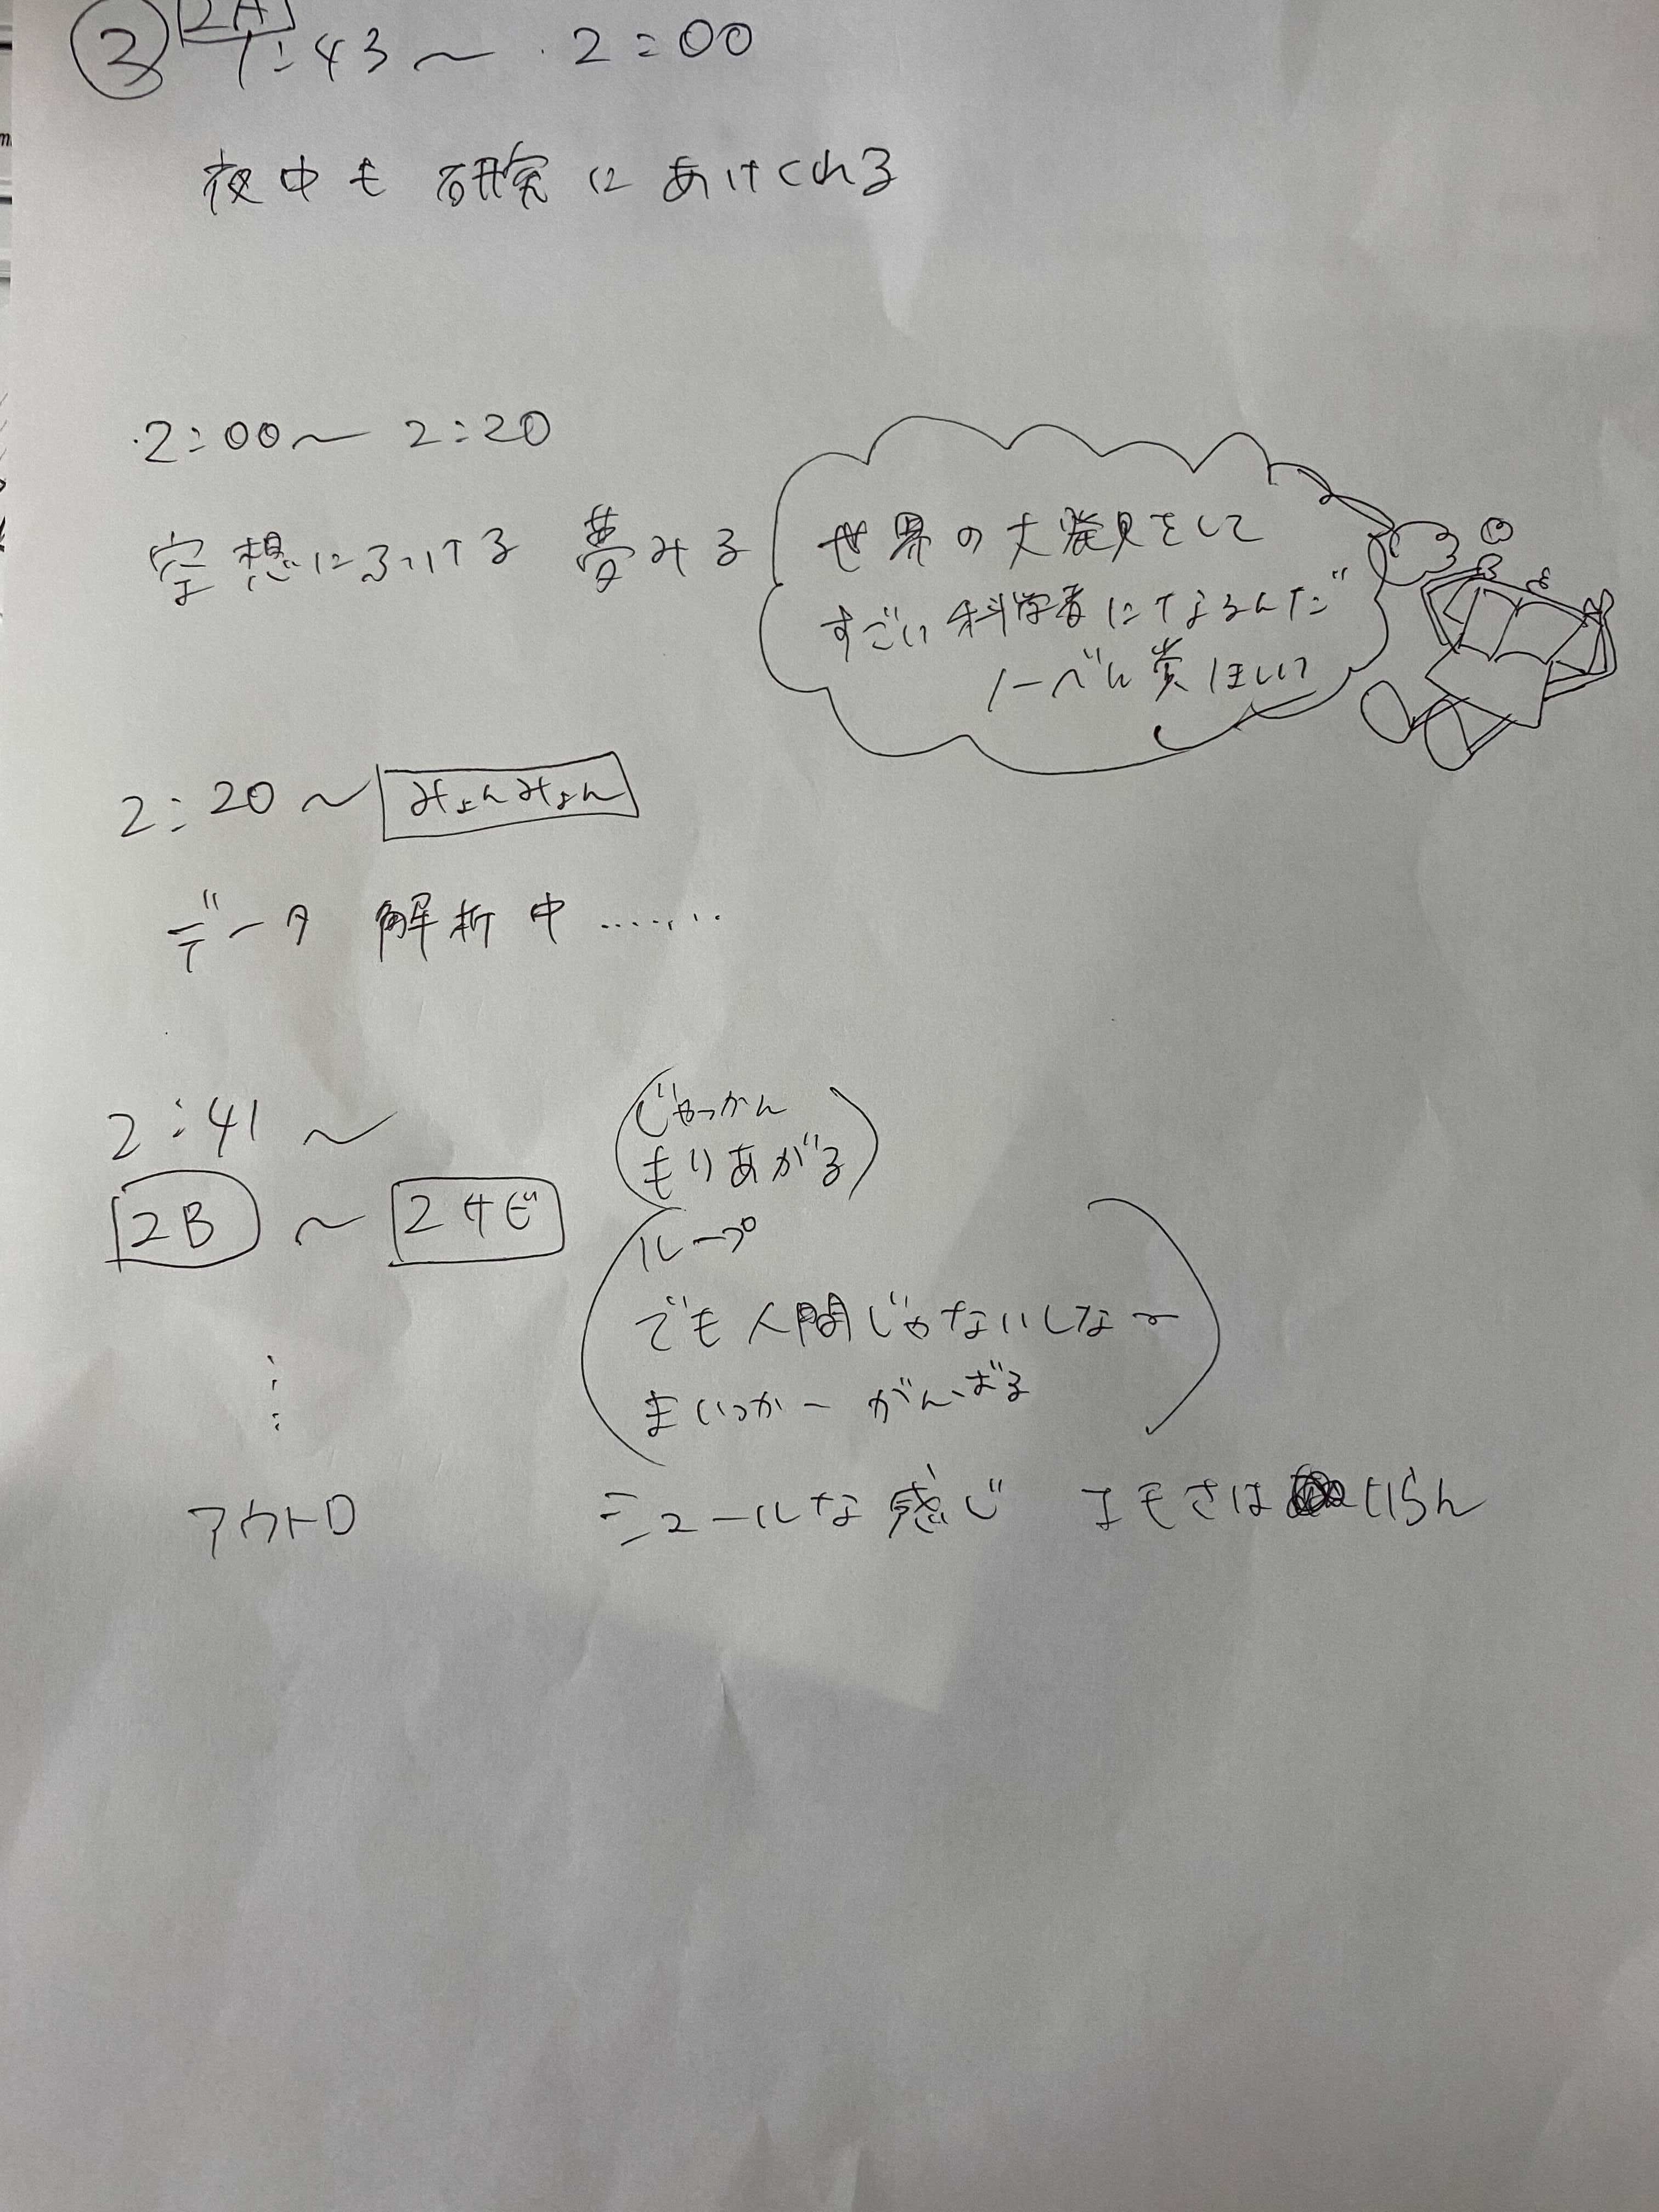 ③ 2A
1:43〜2:00
夜中も研究にあけくれる
2:00〜2:20
空想にふける 夢みる
世界の大発見をして
すごい科学者になるんだ
ノーベル賞ほしい
2:20〜 みょんみょん
データ解析中………
2:41〜
2B 〜 2サビ
じゃっかん
もりあがる
ループ
でも人間じゃないしなー
まいっかー がんばる
アウトロ シュールな感じ エモさはいらん